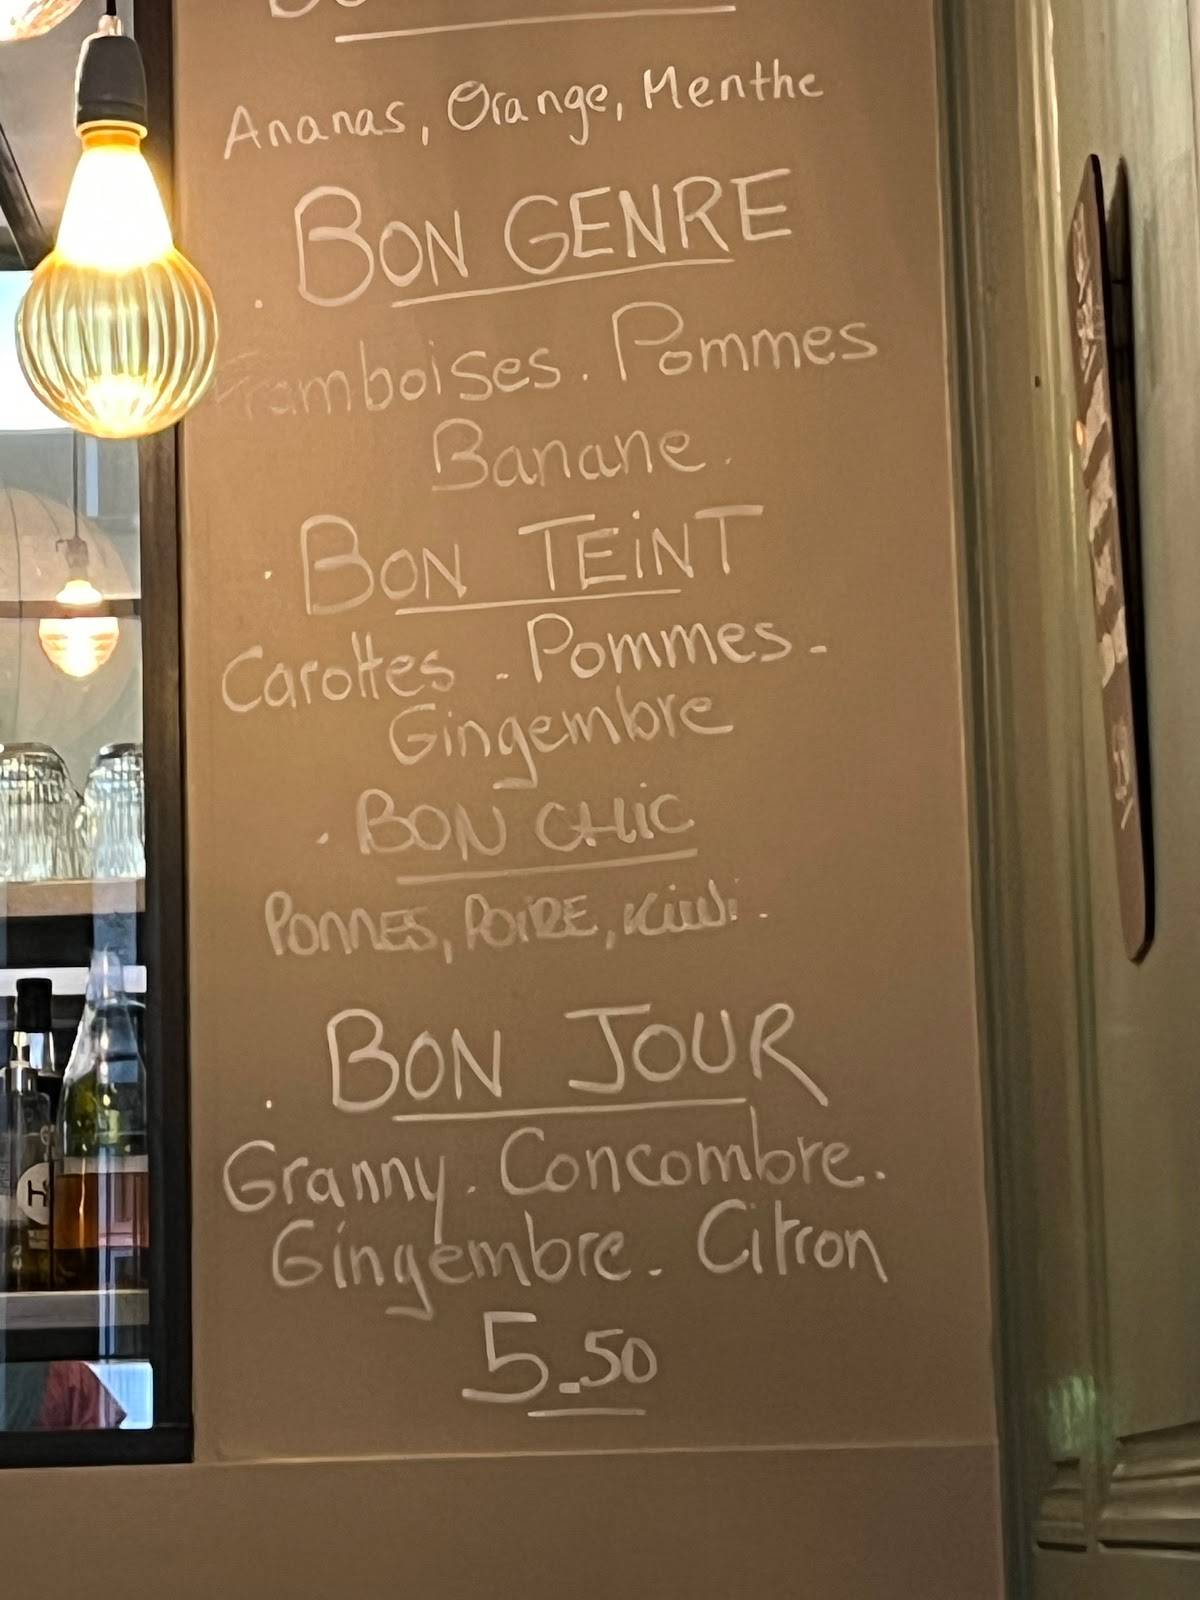 Ananas, Orange, Menthe
. BON GENRE
Framboises. Pommes
Banane.
. BON TEINT
Carottes - Pommes -
Gingembre
. BON CHIC
POMMES, POIRE, KIWI.
. BON JOUR
Granny. Concombre.
Gingembre. Citron
5.50